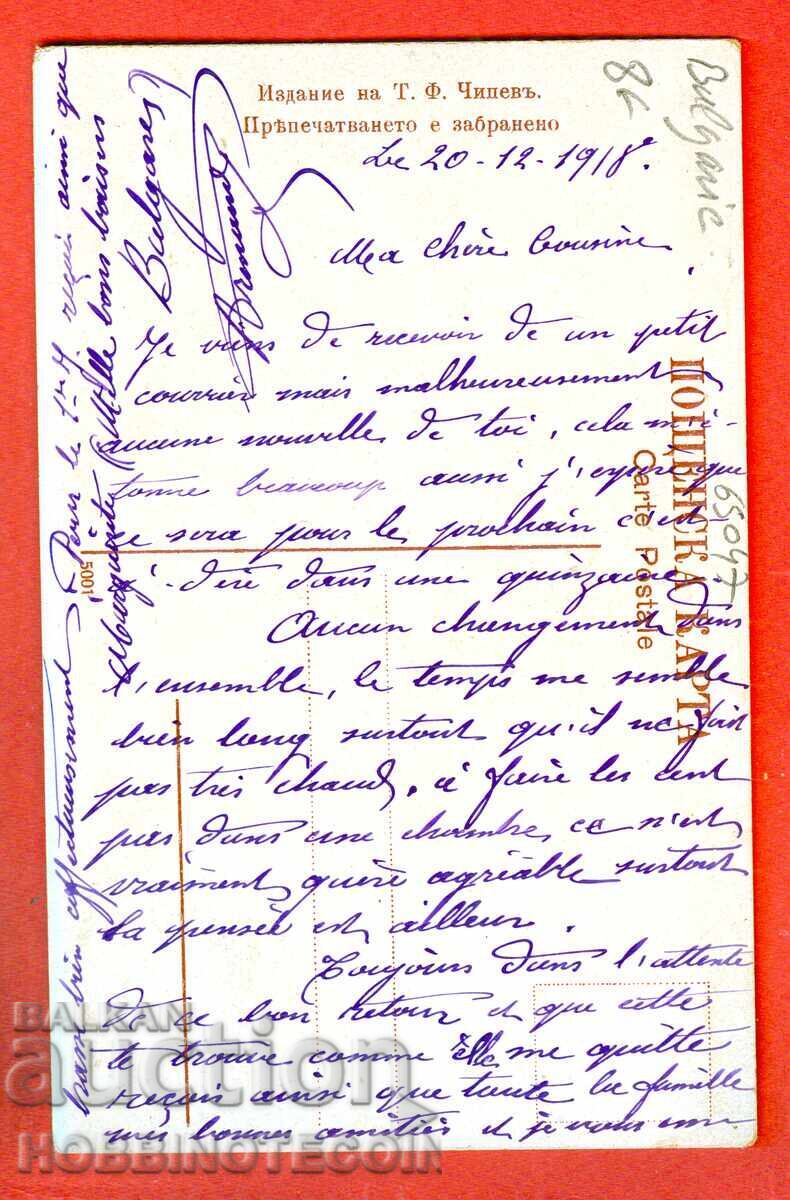 Издание на Т. Ф. Чипевъ.
Прѣпечатването е забранено
Bulgarie
8L
65047
ПОЩЕНСКА КАРТА
Carte Postale
5001
Le 20-12-1918.
Ma chère Cousine
Je viens de recevoir de un petit
courrier mais malheureusement
aucune nouvelle de toi, cela m'é-
tonne beaucoup aussi j'espère que
ce sera pour le prochain c'est-
à-dire dans une quinzaine.
Aucun changement dans
l'ensemble, le temps me semble
bien long surtout qu'il ne fait
pas très chaud, à faire les cent
pas dans une chambre, ce n'est
vraiment guère agréable surtout
la pensée est ailleur.
Toujours dans l'attente
de ce bon retour et que cette
te trouve comme Elle me quitte
reçois ainsi que toute la famille
mes bonnes amitiés et je vous em-
brasse bien affectueusement
Pour le 1er reçois ainsi que
Marguerite Mille bons baisers
Bulgares
BALKAN
auction
HOBBINOTECOIN